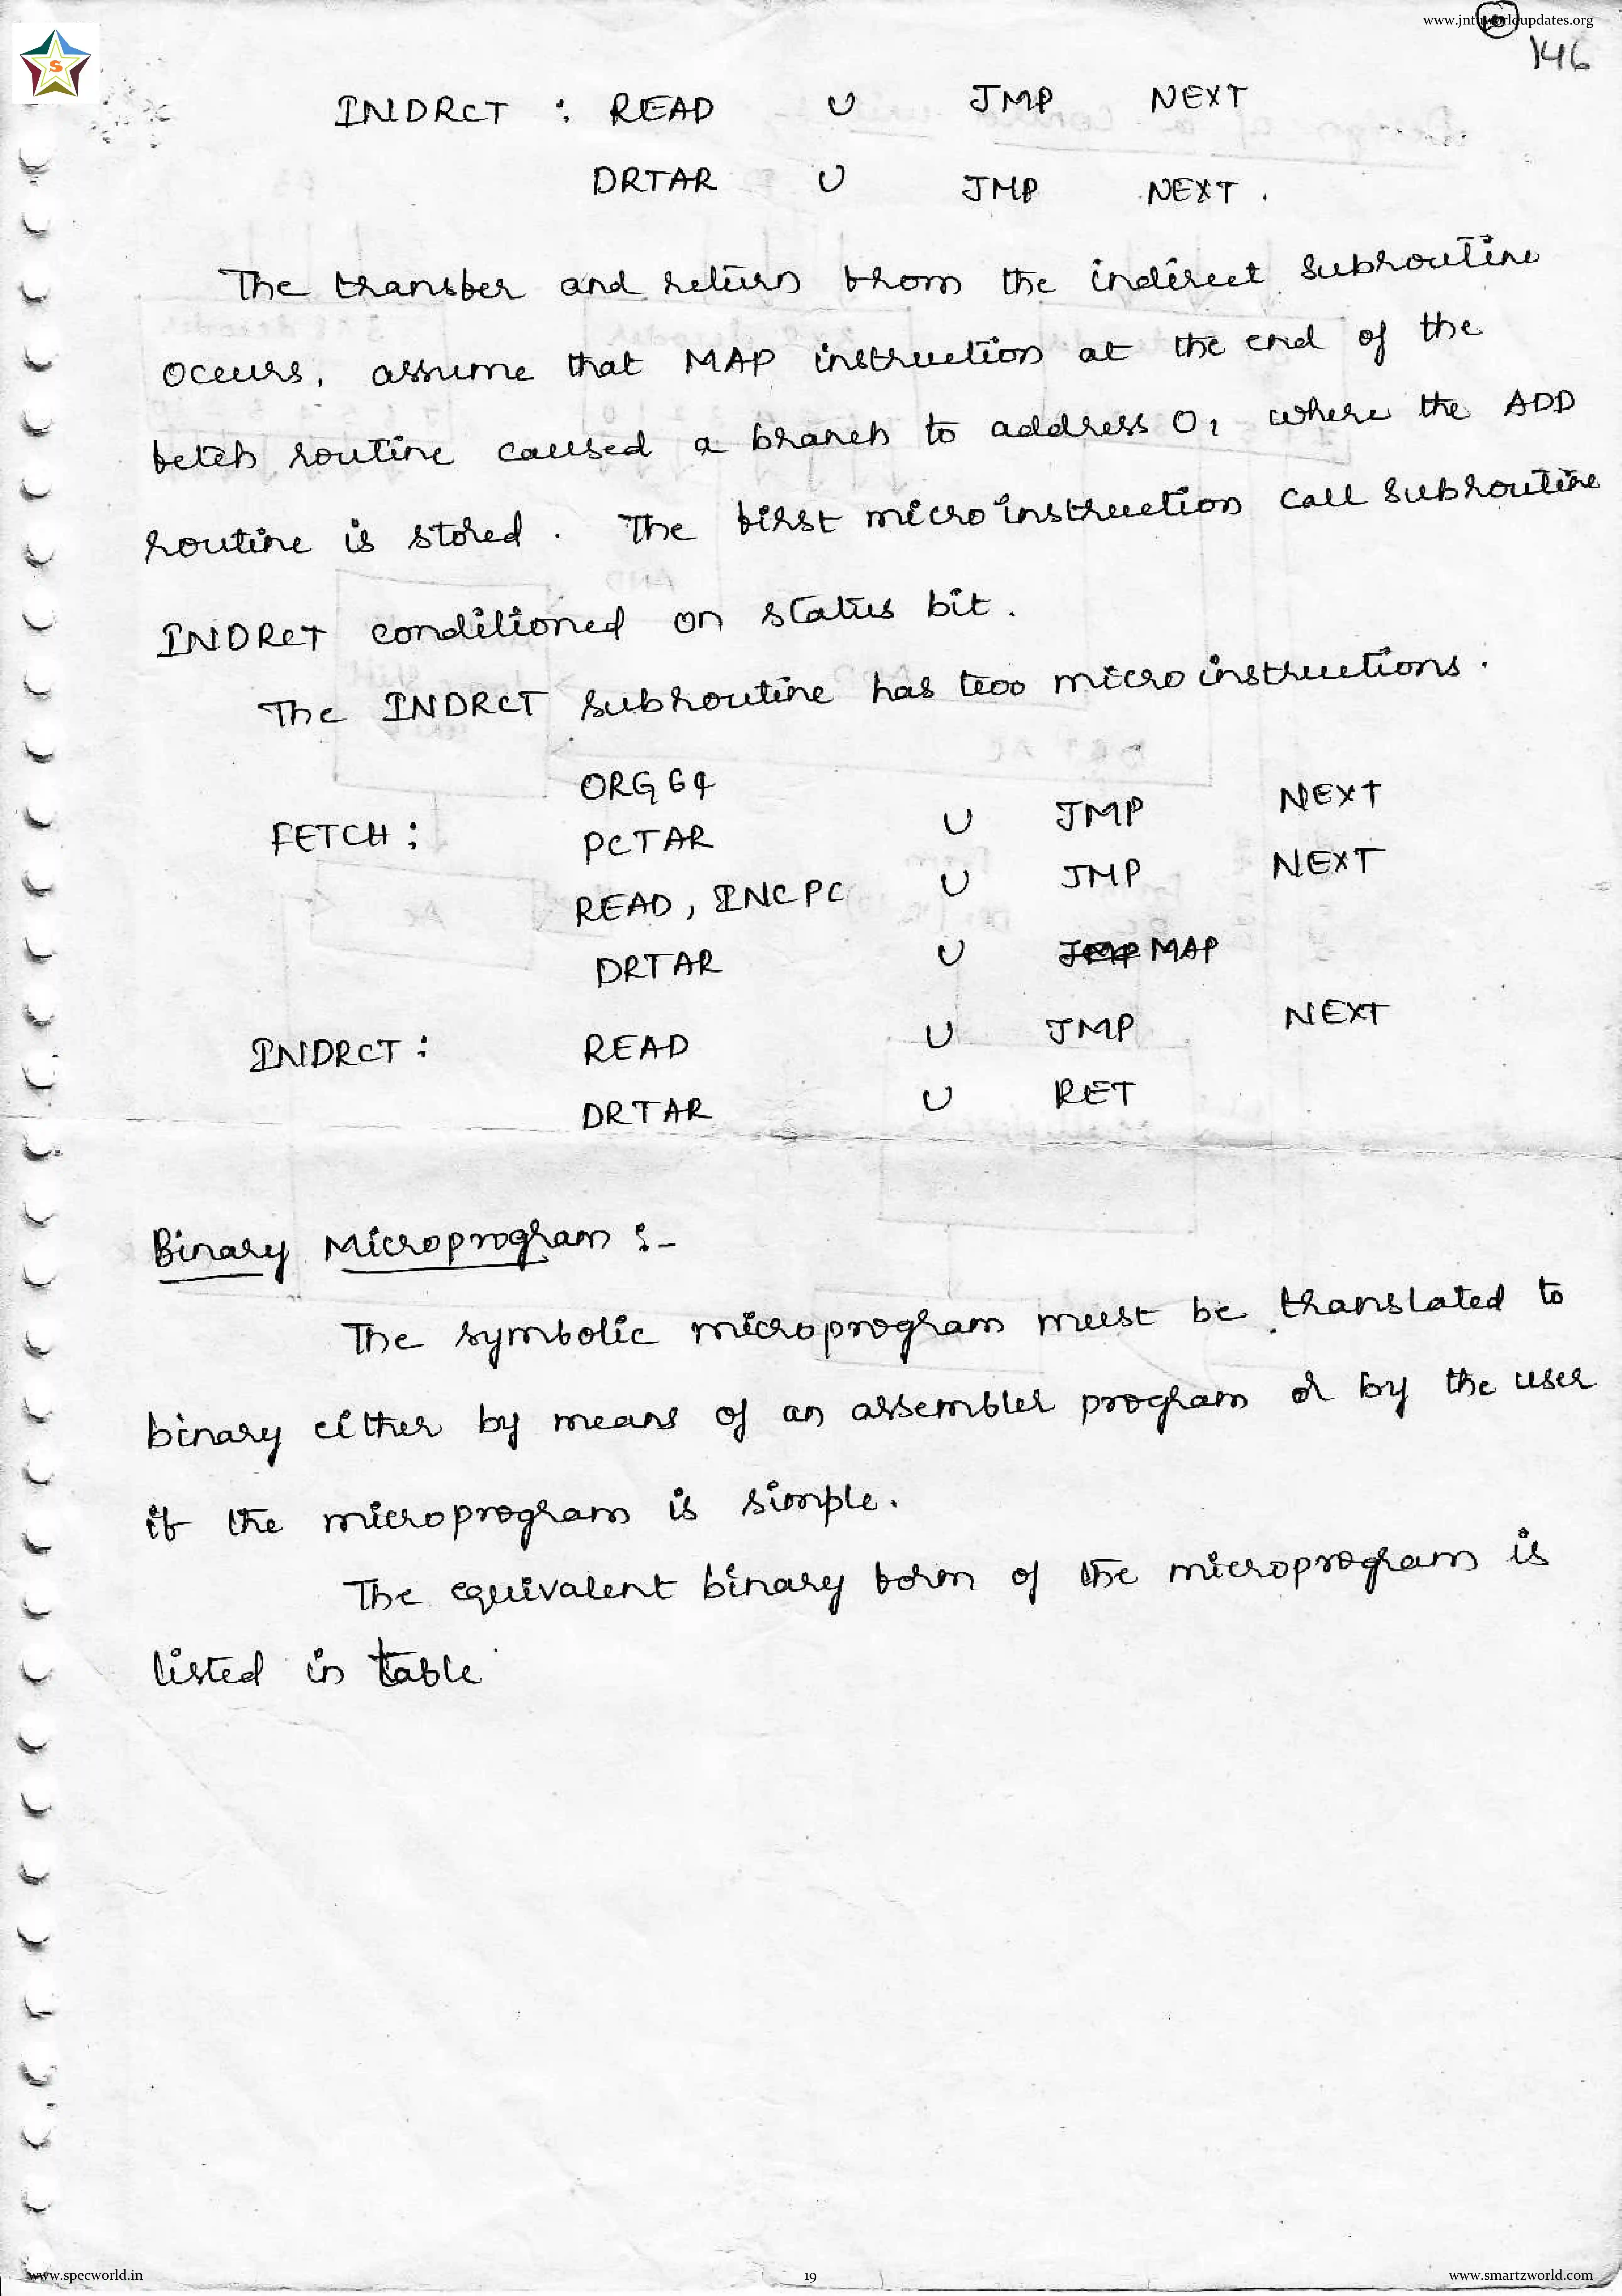 www.jntuworldupdates.org
146
S
INDRCT : READ U JMP NEXT
DRTAR U JMP NEXT .
The transfer and return from the indirect subroutine
occurs, assume that MAP instruction at the end of the
fetch routine caused a branch to address 0, where the ADD
routine is stored . The first micro instruction call subroutine
INDRCT conditioned on status bit .
The INDRCT subroutine has two micro instructions .
ORG 64
FETCH : PCTAR U JMP NEXT
READ, INCPC U JMP NEXT
DRTAR U JMP MAP
INDRCT : READ U JMP NEXT
DRTAR U RET
Binary Microprogram :-
The symbolic microprogram must be translated to
binary either by means of an assembler program or by the user
if the microprogram is simple.
The equivalent binary form of the microprogram is
listed in table
www.specworld.in 19 www.smartzworld.com